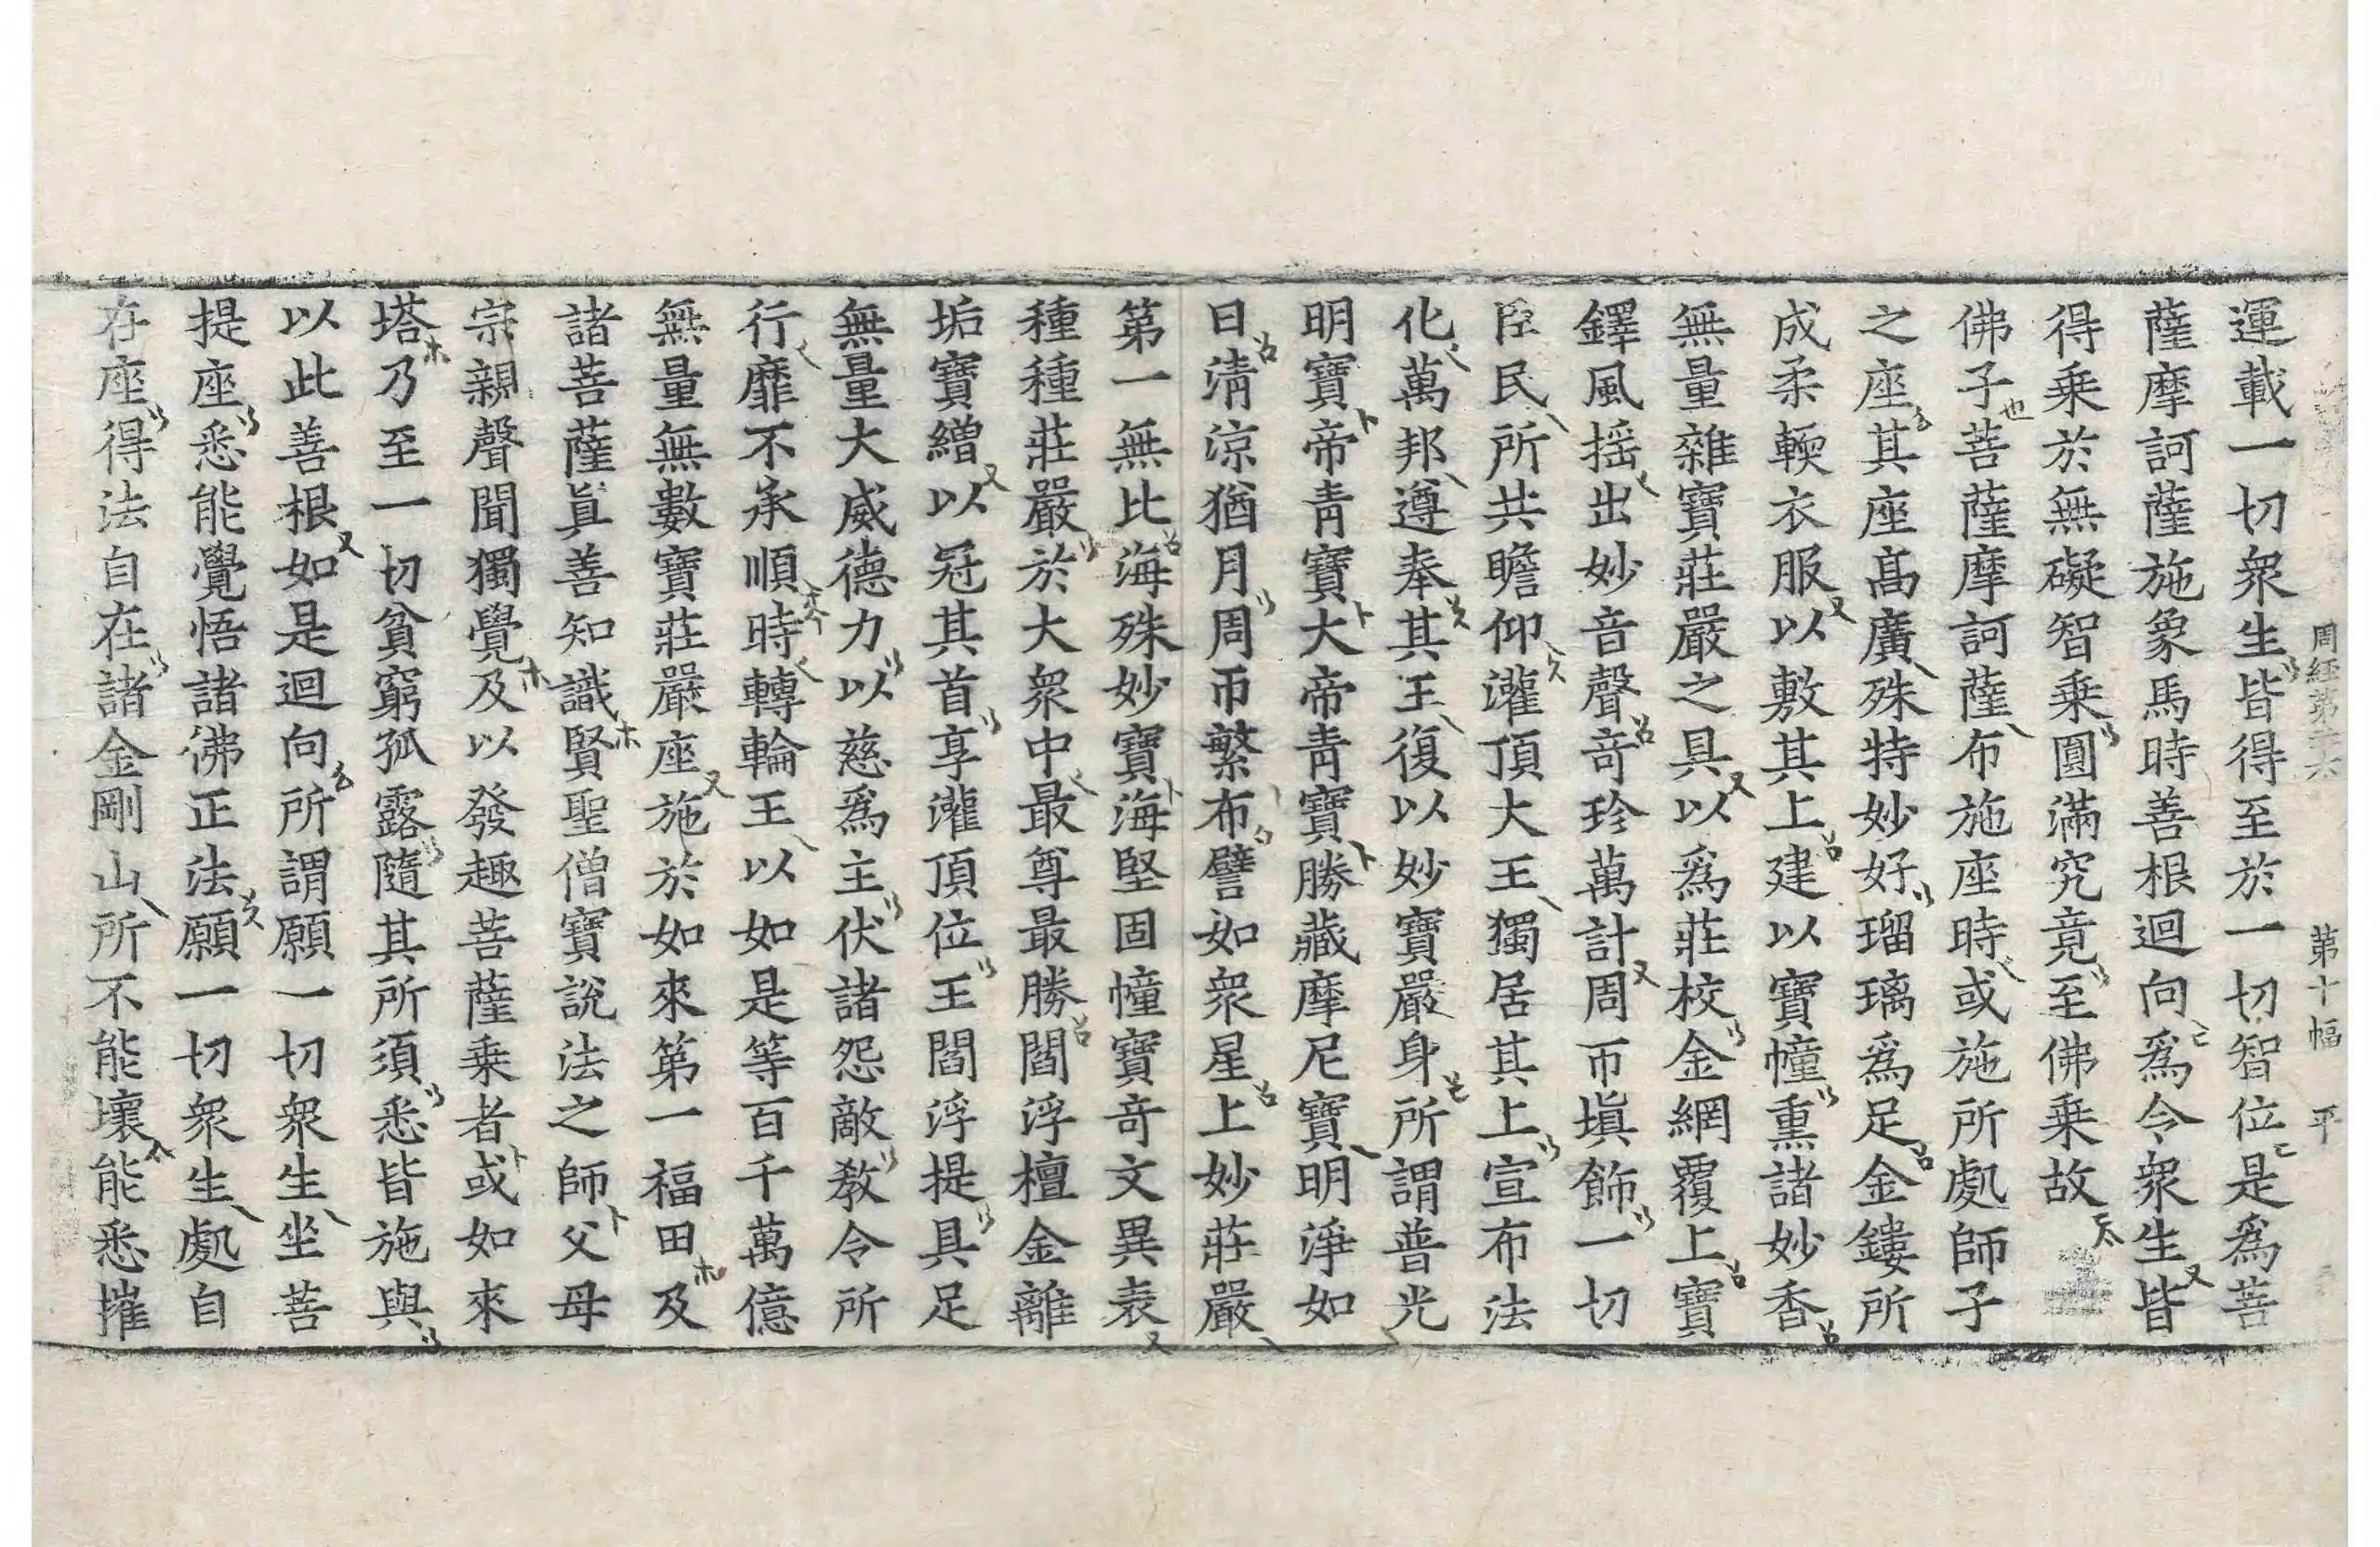 周經第二十六 第十幅 平
運載一切衆生皆得至於一切智位是爲菩
薩摩訶薩施象馬時善根迴向爲令衆生皆
得乗於無礙智乗圓滿究竟至佛乗故
佛子菩薩摩訶薩布施座時或施所處師子
之座其座髙廣殊特妙好瑠璃爲足金鏤所
成柔輭衣服以敷其上建以寶幢熏諸妙香
無量雜寶莊嚴之具以爲莊校金網覆上寶
鐸風揺出妙音聲竒珍萬計周帀塡飾一切
臣民所共瞻仰灌頂大王獨居其上宣布法
化萬邦遵奉其王復以妙寶嚴身所謂普光
明寶帝靑寶大帝靑寶勝藏摩尼寶明淨如
日淸凉猶月周帀繁布譬如衆星上妙莊嚴
第一無比海殊妙寶海堅固幢寶竒文異表
種種莊嚴於大衆中最尊最勝閻浮檀金離
垢寶繒以冠其首享灌頂位王閻浮提具足
無量大威德力以慈爲主伏諸怨敵敎令所
行靡不承順時轉輪王以如是等百千萬億
無量無數寶莊嚴座施於如來第一福田及
諸菩薩眞善知識賢聖僧寶說法之師父母
宗親聲聞獨覺及以發趣菩薩乗者或如來
塔乃至一切貧窮孤露隨其所須悉皆施與
以此善根如是迴向所謂願一切衆生坐菩
提座悉能覺悟諸佛正法願一切衆生處自
在座得法自在諸金剛山所不能壞能悉摧